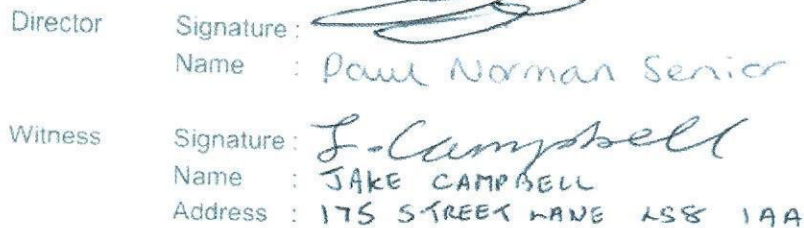 Director Signature :
Name : Paul Norman Senior
Witness Signature : J. Campbell
Name : JAKE CAMPBELL
Address : 175 STREET LANE LS8 1AA